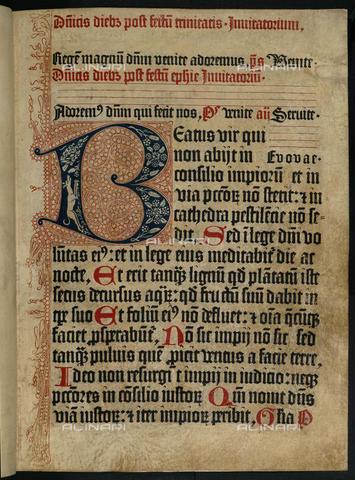 Dn̄icis diebꝫ post festū trinitatis · Invitatorium.
Regem magnū dn̄m venite adoremus, p̄s Venite ·
Dn̄icis diebꝫ post festū ephīe Invitatoriū.
Adoremꝰ dn̄m qui fecit nos, Ps venite añ Servite ·
Beatus vir qui
non abijt in Evovae
consilio impiorū et in
via pccōꝝ nō stetit: ⁊ in
cathedra pestilēcie nō se-
dit. Sed ī lege dn̄i vo
lūtas eiꝰ: et in lege eius meditabit̄ die ac
nocte. Et erit tanqꝫ lignū qd̄ plātatū iste
secus decursus aqꝝ: qd̄ fructū suū dabit in
tp̄e suo Et foliū eiꝰ nō defluet: ⁊ oīa q̄cūqꝫ
faciet ꝓsperabūt̄. Nō sic impij nō sic sed
tanqꝫ puluis quē ꝓicit ventus a facie terre.
Ideo non resurgūt impij in iudicio: neqꝫ
pccōres in cōsilio iustoꝝ Qm̄ novit dn̄s
viā iustoꝝ: ⁊ iter impioꝝ peribit. Glīa P
ALINARI
ALINARI
ALINARI